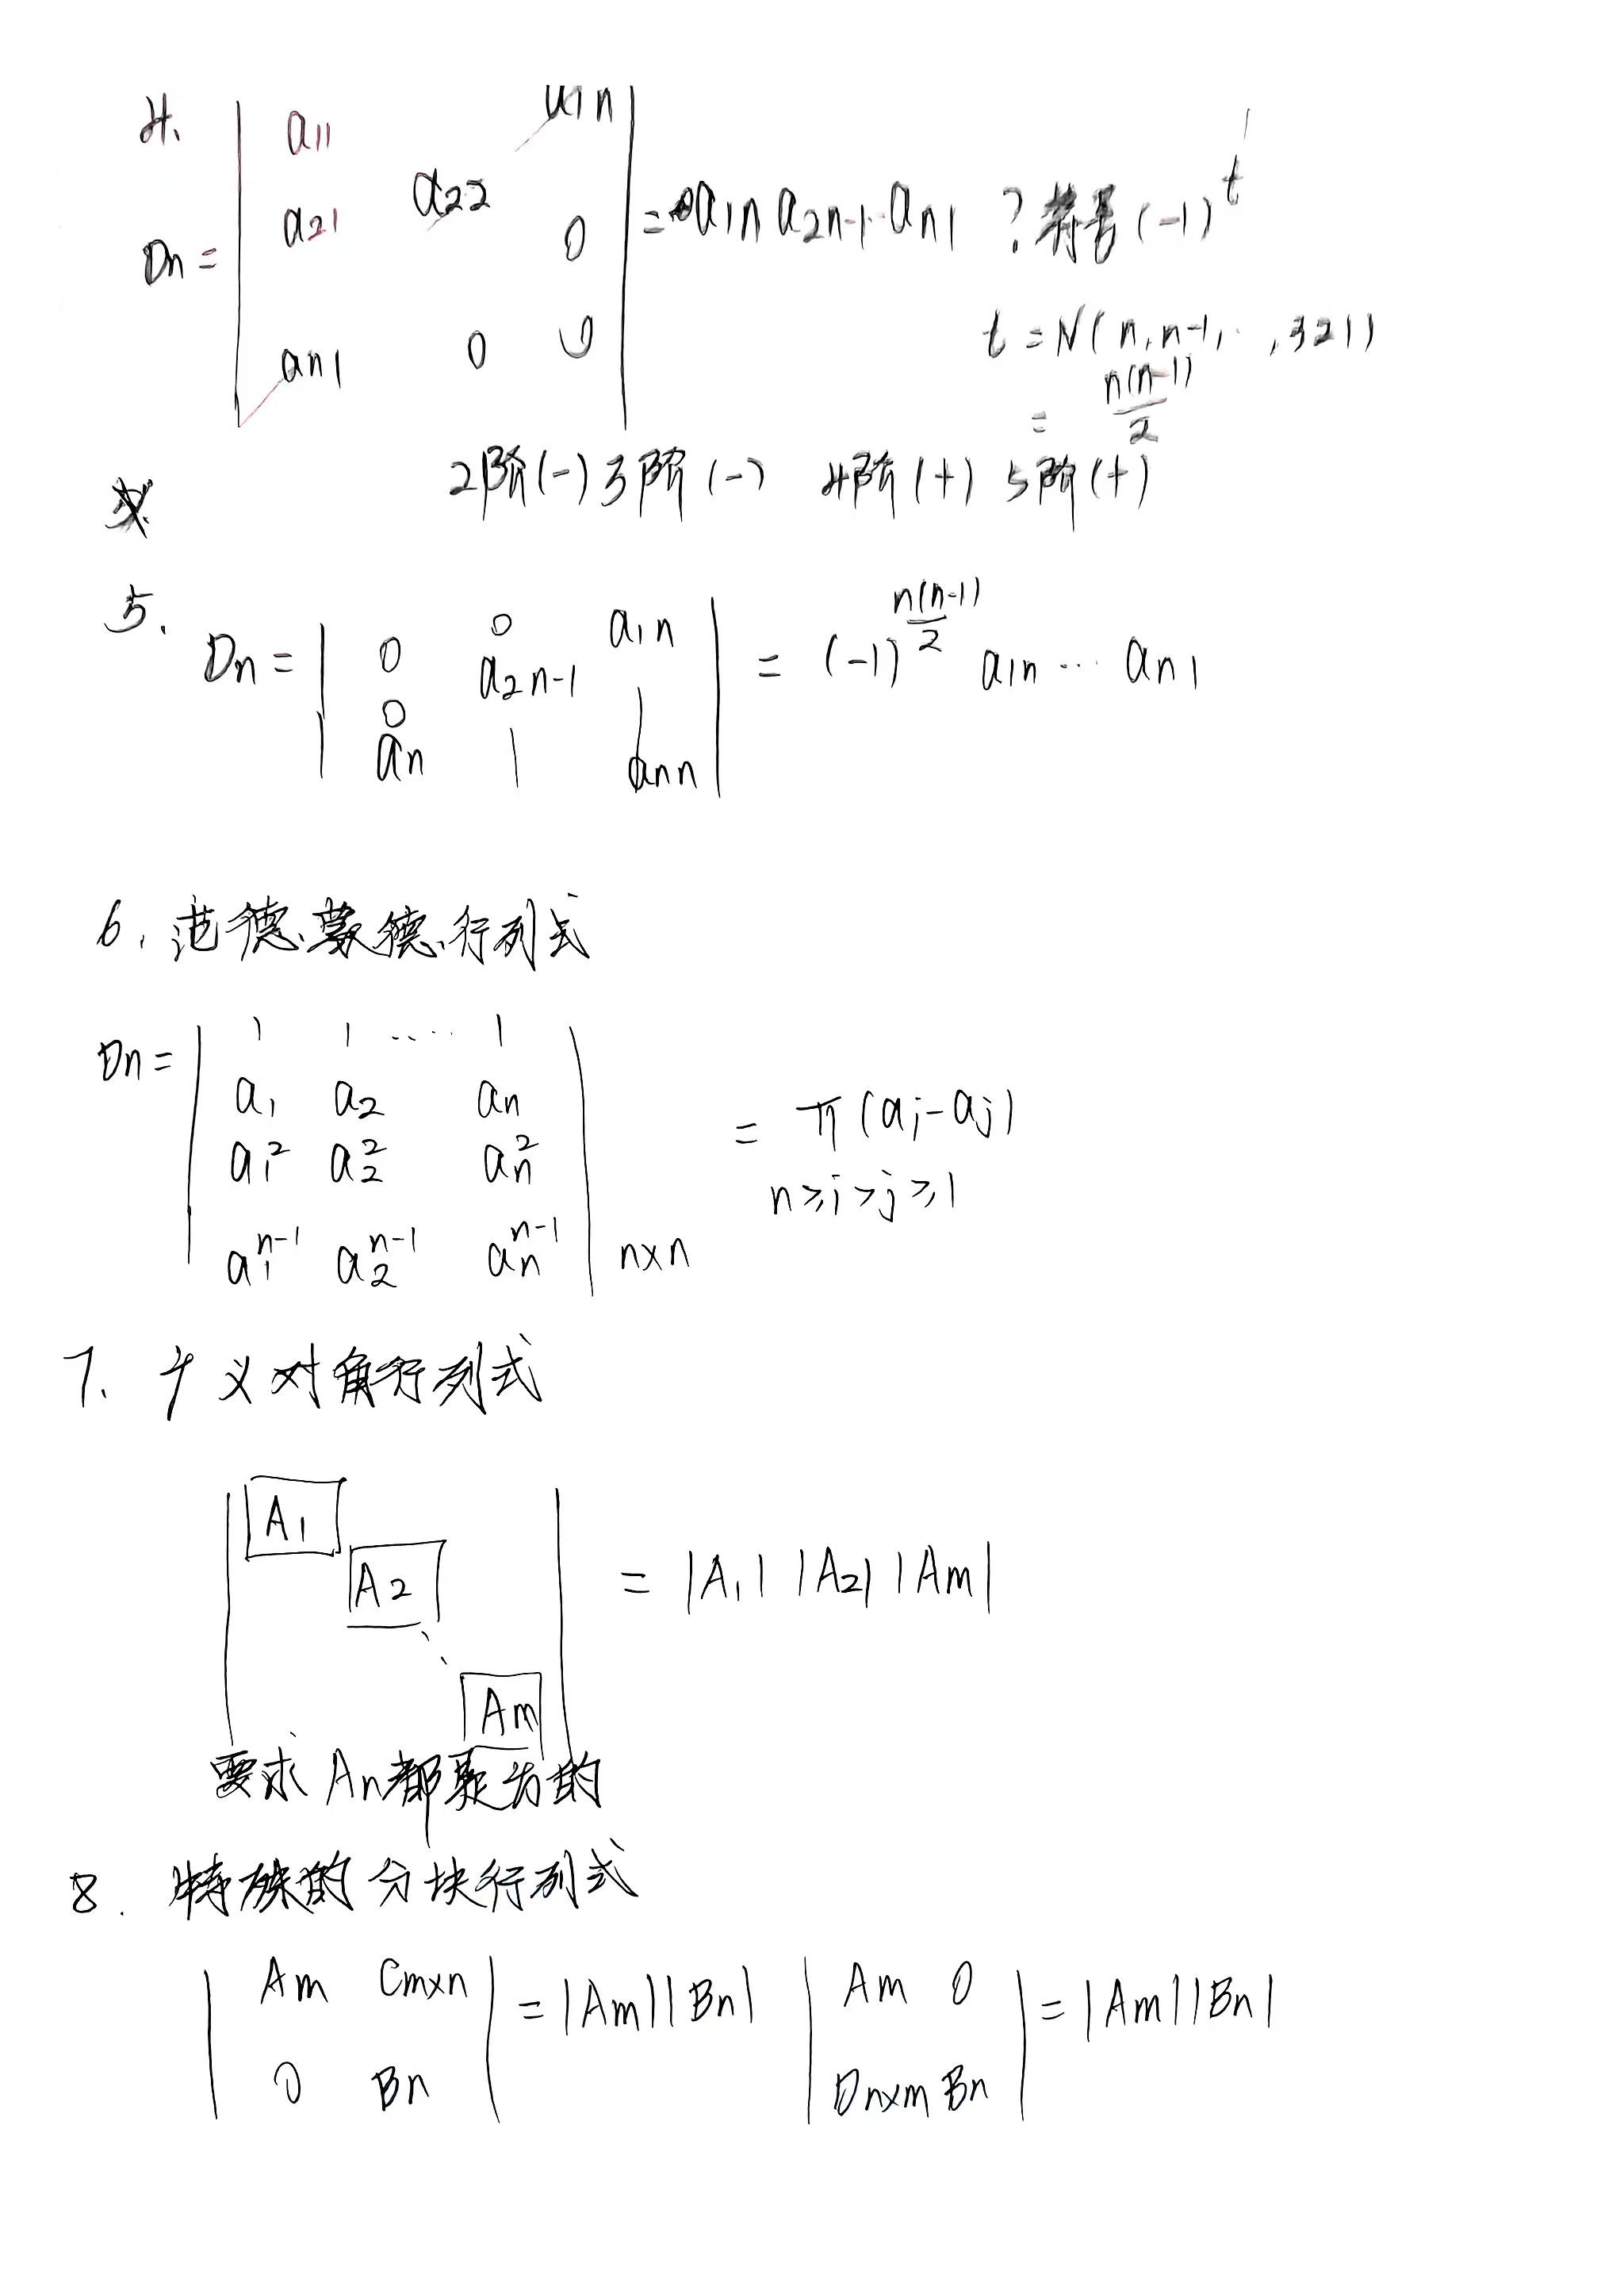 4.
a11 a1n
a21 a22 0
Dn =
an1 0 0
= a1n a2n-1 · an1 ? 符号 (-1)^t
t = N(n, n-1, ··, 321)
= n(n-1)/2
2阶(-) 3阶(-) 4阶(+) 5阶(+)
5.
0 0 a1n
Dn = a2n-1 = (-1)^(n(n-1)/2) a1n ··· an1
0
an ann
6. 范德蒙德行列式
Dn =
1 1 ···· 1
a1 a2 an
a1^2 a2^2 an^2
a1^(n-1) a2^(n-1) an^(n-1) n×n
= π(ai - aj)
n≥i>j≥1
7. 广义对角行列式
A1
A2 = |A1| |A2| |Am|
Am
要求 An都是方的
8. 特殊的分块行列式
Am Cm×n = |Am||Bn| Am 0 = |Am||Bn|
0 Bn Dn×m Bn